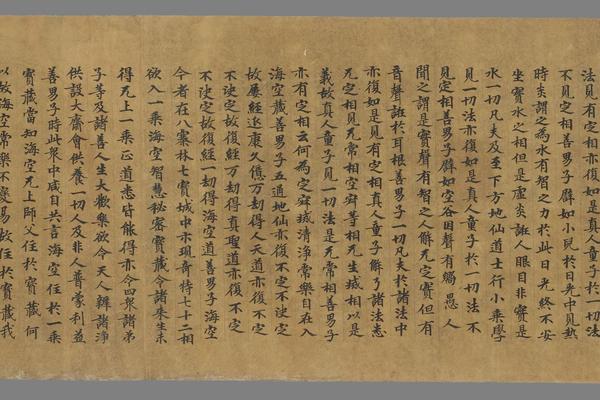 法見有定相亦復如是真人童子於一切法
不見定相善男子譬如小兒於日光中見熱
時炎謂之為水有智之力於此日光終不妄
坐實水之相但是虛炎誑人眼目非實是
水一切凡夫及至下方地仙道士行小乘學
見一切法亦復如是真人童子於一切法不
見定相善男子譬如空谷因聲有觸愚人
聞之謂是實聲有智之人解无定實但有
音聲誑於耳根善男子一切凡夫於諸法中
亦復如是見有定相真人童子解了諸法悉
无定相見无常相空寂等相无生滅相以是
義故真人童子見一切法是无常相善男子
亦有定相云何為定寂滅清淨常樂自在入
海空藏善男子五道地仙亦復不定不決定
故廉經迊康久億万劫得人天道亦復不定
不決定故復經万劫得真聖道亦復不定
不決定故復經一劫得海空道善男子海空
今者在八騫林七寶城中示現奇特七十二相
欲入一乘海空智慧祕密寶藏令諸來生未
得无上一乘正道悉皆能得亦令四衆諸弟
子等及諸善人生大歡樂欲令天人辯諸淨
供設大齋會供養一切人及非人普蒙利益
善男子時此衆中咸自共言海空任於一乘
寶藏當知海空无上師父任於寶藏何
以故海空常樂不變易故任於寶藏我